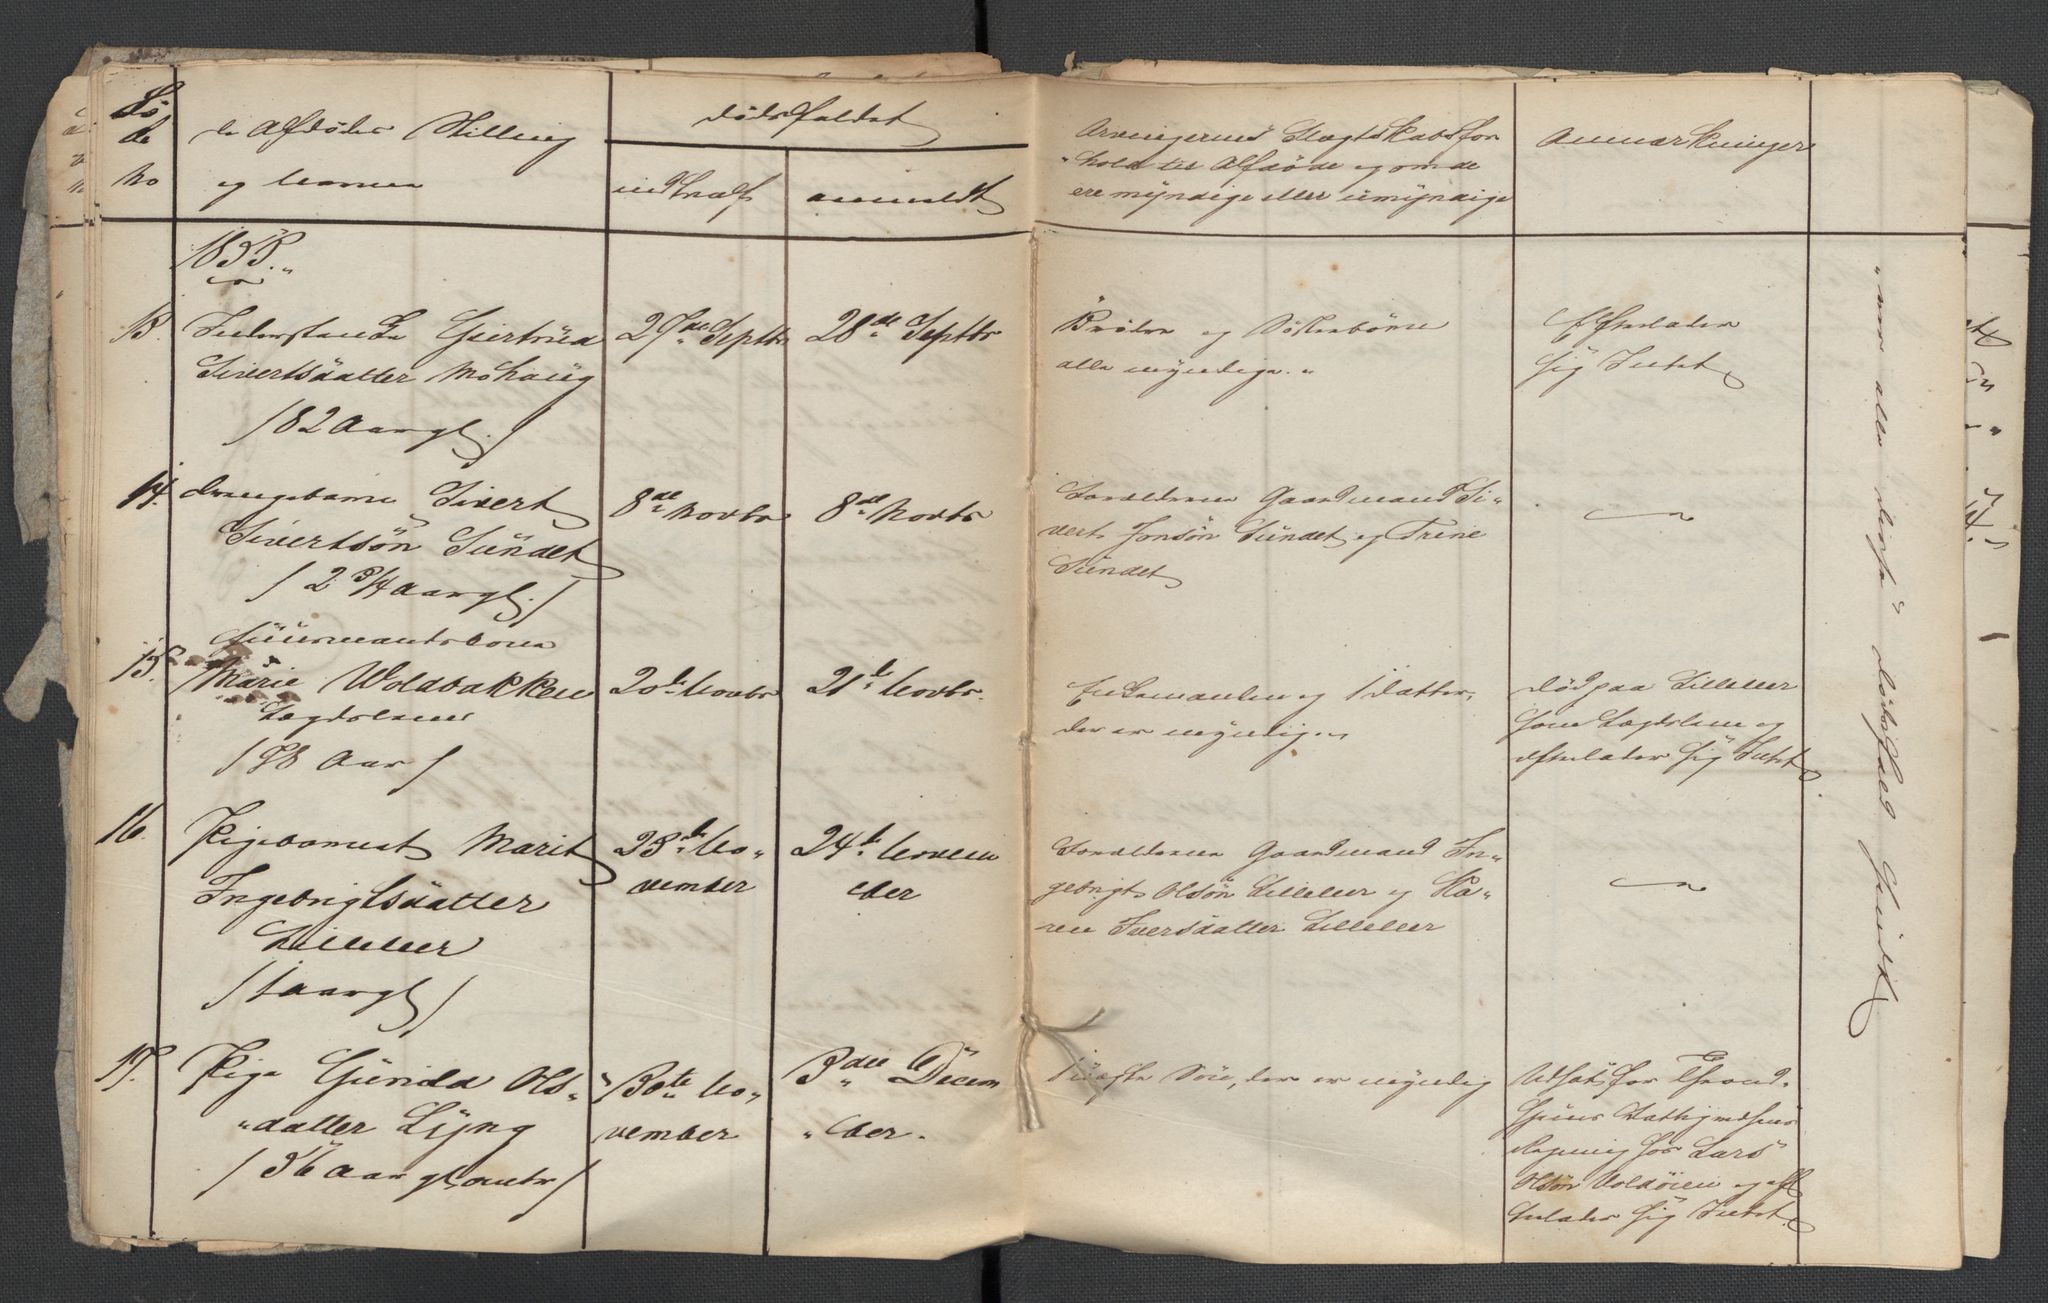 Lö
be
No
de Afdødes Stilling
og Navne
Dødsfaldet
indtraf
anmeldt
Arvingernes Slægtskabsfor
"hold til Afdøde og om de
ere myndige eller umyndige
Anmærkninger
1855.
13.
Inderstenke Giertrud
Sivertsdatter Mohaug
/82 Aar gl./
27de Septbr
28de Septbr
Brødre og Søskebørn
alle myndige.
Efterlader
sig Intet
14.
Drengebarn Sivert
Sivertsøn Sundet
/2 3/4 Aar gl./
8de Novbr
8de Novbr
Forældrene Gaardmand Si"
vert Jonsøn Sundet og Trine
Sundet
15.
Huusmandskone
Marie Woldbakken
Lægdslem
/ Aar/
20de Novbr
21de Novbr.
Enkemanden og 1 Datter,
der er myndig.
Død paa Lilleller
som Lægdslem og
efterlader sig Intet
16.
Pigebarnet Marit
Ingebrigtsdatter
Lilleller
/1 Aar gl/
23de No"
vember
24de Novem
ber
Forældrene Gaardmand In"
gebrigt Olsøn Lilleller og Ka"
ren Iversdatter Lilleller
17.
Pige Gurida Ols"
"datter Lyng
/56 Aar gl omtr/
30te No"
vember
3die Decem
"ber.
1 uægte Søn, der er myndig
Udsat for Thrond"
hjems
Regning hos Lars
Olsøn Voldøien og eft
terlader sig Intet
"
alle disse" dødsfald